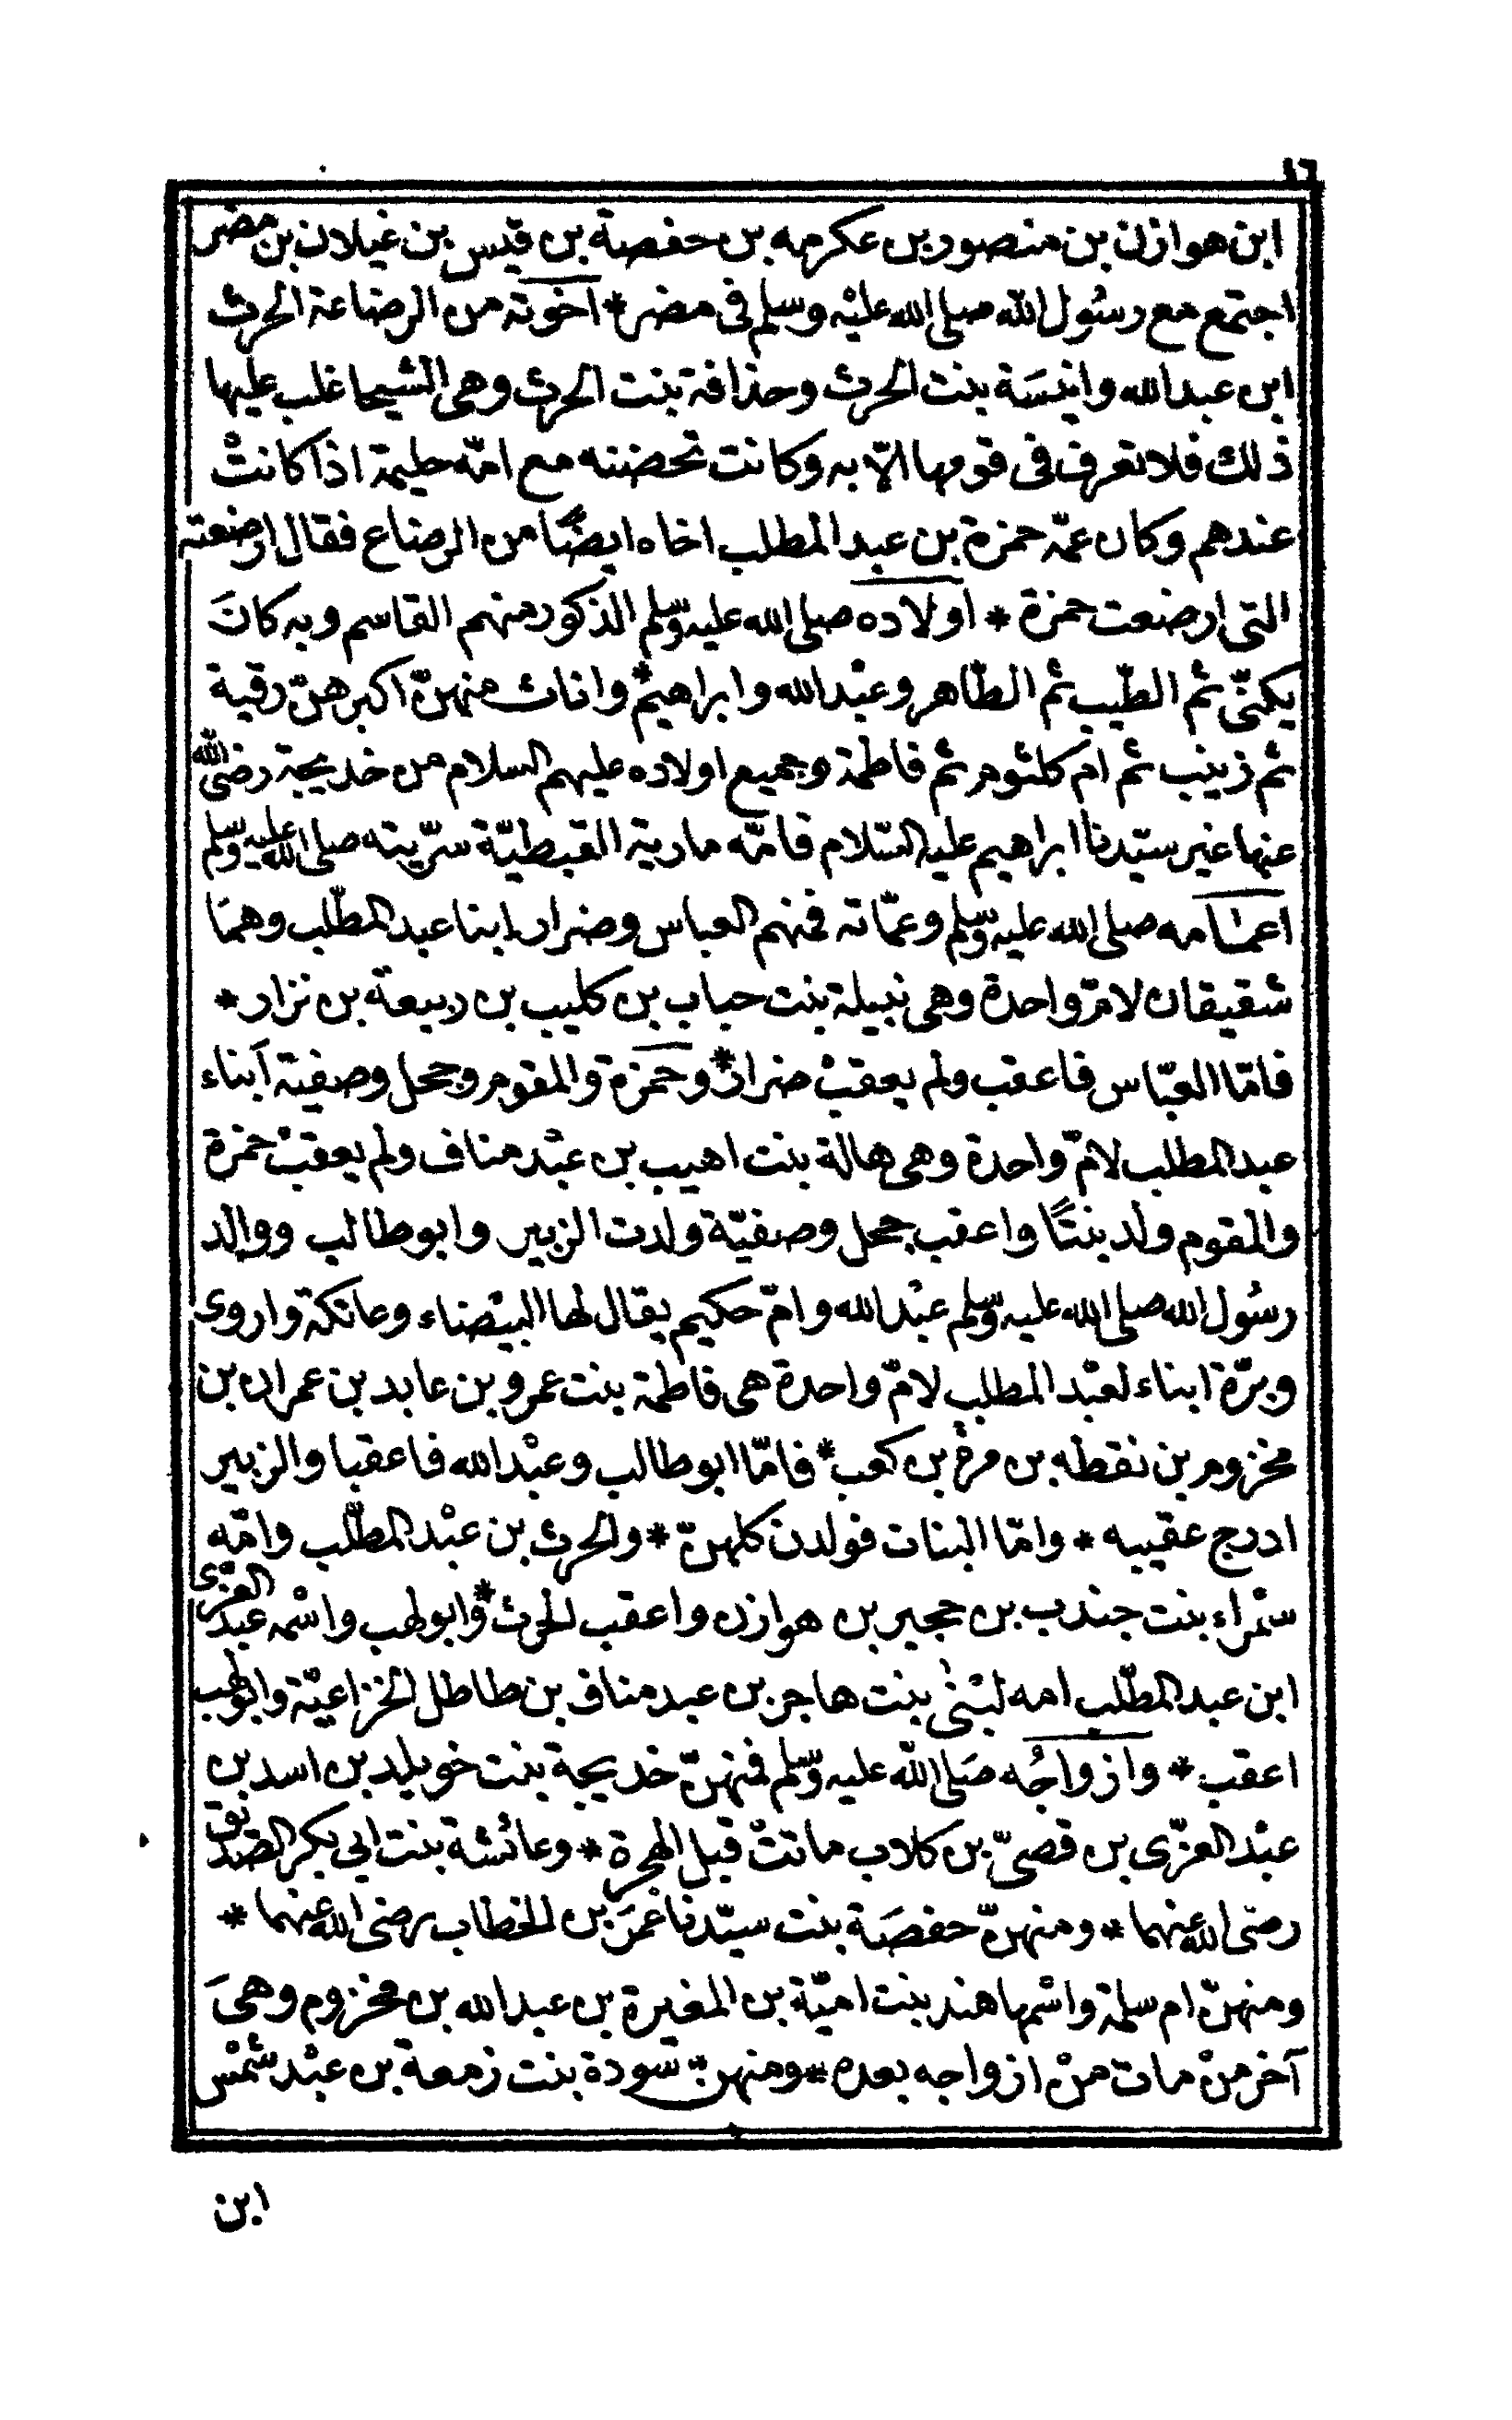 ١٦
ابن هوازن بن منصور بن عكرمه بن حفصة بن قيس بن غيلان بن مضر
اجتمع مع رسُول اللّه صلى الله عليْه وسلم فى مضر * اخوته من الرضاعة الحرث
ابن عبد الله وانيسَة بنت الحرث وحذافة بنت الحرث وهى الشيما غلب عليها
ذلك فلا تعرف فى قومها الّا به وكانت تحضنه مع امّه حليمة اذا كانتْ
عندهم وكان عمّه حمزة بن عبد المطلب اخاه ايضًا من الرضاع فقال ارضعته
التى ارضعت حمزة * اولاده صلى الله عليه وسّلم الذكور منهم القاسم وبه كانَ
يكنّى ثم الطيّب ثم الطّاهر وعبْد الله وابراهيم * واناث منهنّ اكبرهنّ رقية
ثم زينب ثم ام كلثوم ثم فاطمة وجميع اولاده عليهم السلام من خديجة رضى الله
عنها غير سيّدنا ابراهيم عليه السّلام فامّه مارية القبطيّة سرّيته صلى الله عليه وسلم
اعمامه صلى الله عليه وسّلم وعمّاته فمنهم العباس وضرار ابنا عبد المطّلب وهمَا
شقيقان لامّ واحدة وهى نبيلة بنت حباب بن كليب بن ربيعة بن نزار *
فامّا العبّاس فاعقب ولم يعقبْ ضرار * وحمزة والمقوم وجحل وصفية آبناء
عبد المطلب لامّ واحدة وهى هالة بنت اهيب بن عبْد مناف ولم يعقبْ حمزة
والمقوم ولد بنتًا واعقب جحل وصفيّة ولدت الزبير وابو طالب ووالد
رسُول الله صلى الله عليه وسّلم عبْد الله وامّ حكيم يقال لها البيْضاء وعاتكة واروى
وبرّة ابناء لعبْد المطلب لامّ واحدة هى فاطمة بنت عمرو بن عابد بن عمران بن
مخزوم بن نقطه بن مرة بن كعب * فامّا ابو طالب وعبْد الله فاعقبا والزبير
ادرج عقبيه * وامّا البنات فولدن كلهنّ * والحرث بن عبْد المطّلب وامّه
سمْراء بنت جندب بن حجير بن هوازن واعقب الحرث * وابو لهب واسْمه عبْد العزّى
ابن عبد المطّلب امه لبْنى بنت هاجر بن عبد مناف بن طاطل الخزاعيّة وابو لهب
اعقب * وازواجُه صَلى اللّه عليه وسّلم فمنهنّ خديجة بنت خويلد بن اسد بن
عبْد العزّى بن قصىّ بن كلاب ماتتْ قبل الهجرة * وعائشة بنت ابى بكر الصّديق
رضى الله عنهما * ومنهنّ حفصَة بنت سيّدنا عمَر بن الخطاب رضى الله عنهما *
ومنهنّ ام سلمة واسْمها هند بنت اميّة بن المغيرة بن عبد الله بن مخزوم وهىَ
آخر منْ مات منْ ازواجه بعده * ومنهن سودة بنت زمعة بن عبْد شمْس
ابن